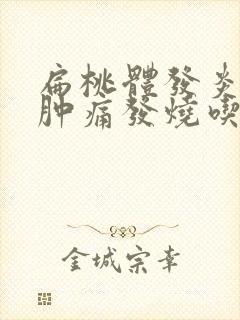 扁桃體發炎
肿痛發燒喫
金城宗幸